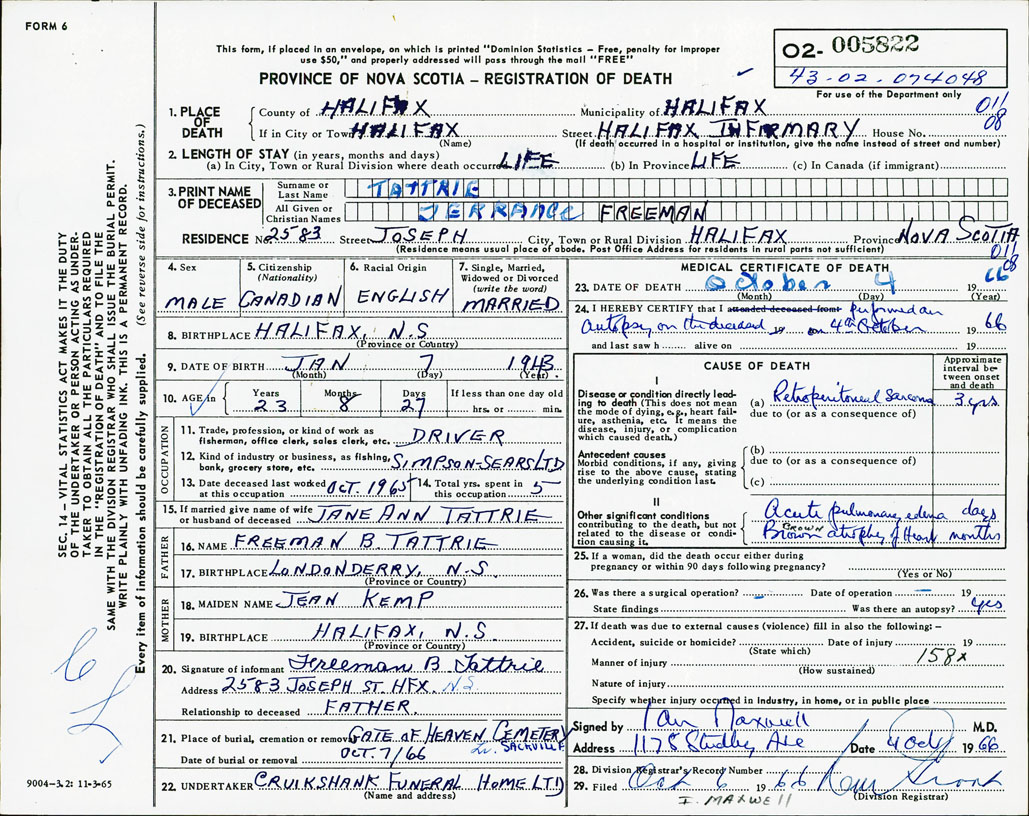 FORM 6
This form, if placed in an envelope, on which is printed "Dominion Statistics – Free, penalty for improper
use $50," and properly addressed will pass through the mail "FREE"
PROVINCE OF NOVA SCOTIA – REGISTRATION OF DEATH
02- 005822
43-02-074048
For use of the Department only
011
08
1. PLACE OF DEATH
County of HALIFAX Municipality of HALIFAX
If in City or Town HALIFAX Street HALIFAX INFIRMARY House No.
(Name) (If death occurred in a hospital or institution, give the name instead of street and number)
2. LENGTH OF STAY (in years, months and days)
(a) In City, Town or Rural Division where death occurred LIFE (b) In Province LIFE (c) In Canada (if immigrant)
3. PRINT NAME OF DECEASED
Surname or Last Name TATTRIE
All Given or Christian Names TERRANCE FREEMAN
RESIDENCE No. 2583 Street JOSEPH City, Town or Rural Division HALIFAX Province NOVA SCOTIA
(Residence means usual place of abode. Post Office Address for residents in rural parts not sufficient)
011
08
4. Sex MALE
5. Citizenship (Nationality) CANADIAN
6. Racial Origin ENGLISH
7. Single, Married, Widowed or Divorced (write the word) MARRIED
8. BIRTHPLACE HALIFAX, N.S
(Province or Country)
9. DATE OF BIRTH JAN 7 1943
(Month) (Day) (Year)
10. AGE in Years 23 Months 8 Days 27 If less than one day old hrs. or min.
OCCUPATION
11. Trade, profession, or kind of work as
fisherman, office clerk, sales clerk, etc. DRIVER
12. Kind of industry or business, as fishing,
bank, grocery store, etc. SIMPSON-SEARS LTD
13. Date deceased last worked at this occupation OCT. 1965 14. Total yrs. spent in this occupation 5
15. If married give name of wife
or husband of deceased JANE ANN TATTRIE
FATHER
16. NAME FREEMAN B. TATTRIE
17. BIRTHPLACE LONDONDERRY, N.S.
(Province or Country)
MOTHER
18. MAIDEN NAME JEAN KEMP
19. BIRTHPLACE HALIFAX, N.S.
(Province or Country)
20. Signature of informant Freeman B. Tattrie
Address 2583 JOSEPH ST. HFX. N.S.
Relationship to deceased FATHER.
21. Place of burial, cremation or removal GATE OF HEAVEN CEMETERY
SACKVILLE
Date of burial or removal OCT. 7/66
22. UNDERTAKER CRUIKSHANK FUNERAL HOME LTD
(Name and address)
MEDICAL CERTIFICATE OF DEATH
23. DATE OF DEATH October 4 1966
(Month) (Day) (Year)
24. I HEREBY CERTIFY that I attended deceased from performed an
autopsy on the deceased 19 on 4th October 1966
and last saw h alive on 19
CAUSE OF DEATH
Approximate interval between onset and death
I
Disease or condition directly leading to death (This does not mean
the mode of dying, e.g., heart failure, asthenia, etc. It means the
disease, injury, or complication
which caused death.)
(a) Retroperitoneal Sarcoma 3 yrs
due to (or as a consequence of)
Antecedent causes
Morbid conditions, if any, giving
rise to the above cause, stating
the underlying condition last.
(b)
due to (or as a consequence of)
(c)
II
Other significant conditions
contributing to the death, but not
related to the disease or condition causing it.
Acute pulmonary edema days
BROWN
Brown atrophy of Heart months
25. If a woman, did the death occur either during
pregnancy or within 90 days following pregnancy?
(Yes or No)
26. Was there a surgical operation? – Date of operation – 19
State findings Was there an autopsy? yes
27. If death was due to external causes (violence) fill in also the following:–
Accident, suicide or homicide? Date of injury 19
(State which)
158x
Manner of injury
(How sustained)
Nature of injury
Specify whether injury occurred in industry, in home, or in public place
Signed by Ian Maxwell M.D.
Address 1178 Studley Ave Date 4 Oct 1966
28. Division Registrar's Record Number
29. Filed Oct 6 1966
(Division Registrar)
I. MAXWELL
SEC. 14 – VITAL STATISTICS ACT MAKES IT THE DUTY
OF THE UNDERTAKER OR PERSON ACTING AS UNDER-
TAKER TO OBTAIN ALL THE PARTICULARS REQUIRED
IN THE "REGISTRATION OF DEATH" AND TO FILE THE
SAME WITH THE DIVISION REGISTRAR WHO SHALL ISSUE THE BURIAL PERMIT.
WRITE PLAINLY WITH UNFADING INK. THIS IS A PERMANENT RECORD.
Every item of information should be carefully supplied. (See reverse side for instructions.)
9004-3.2: 11-3-65